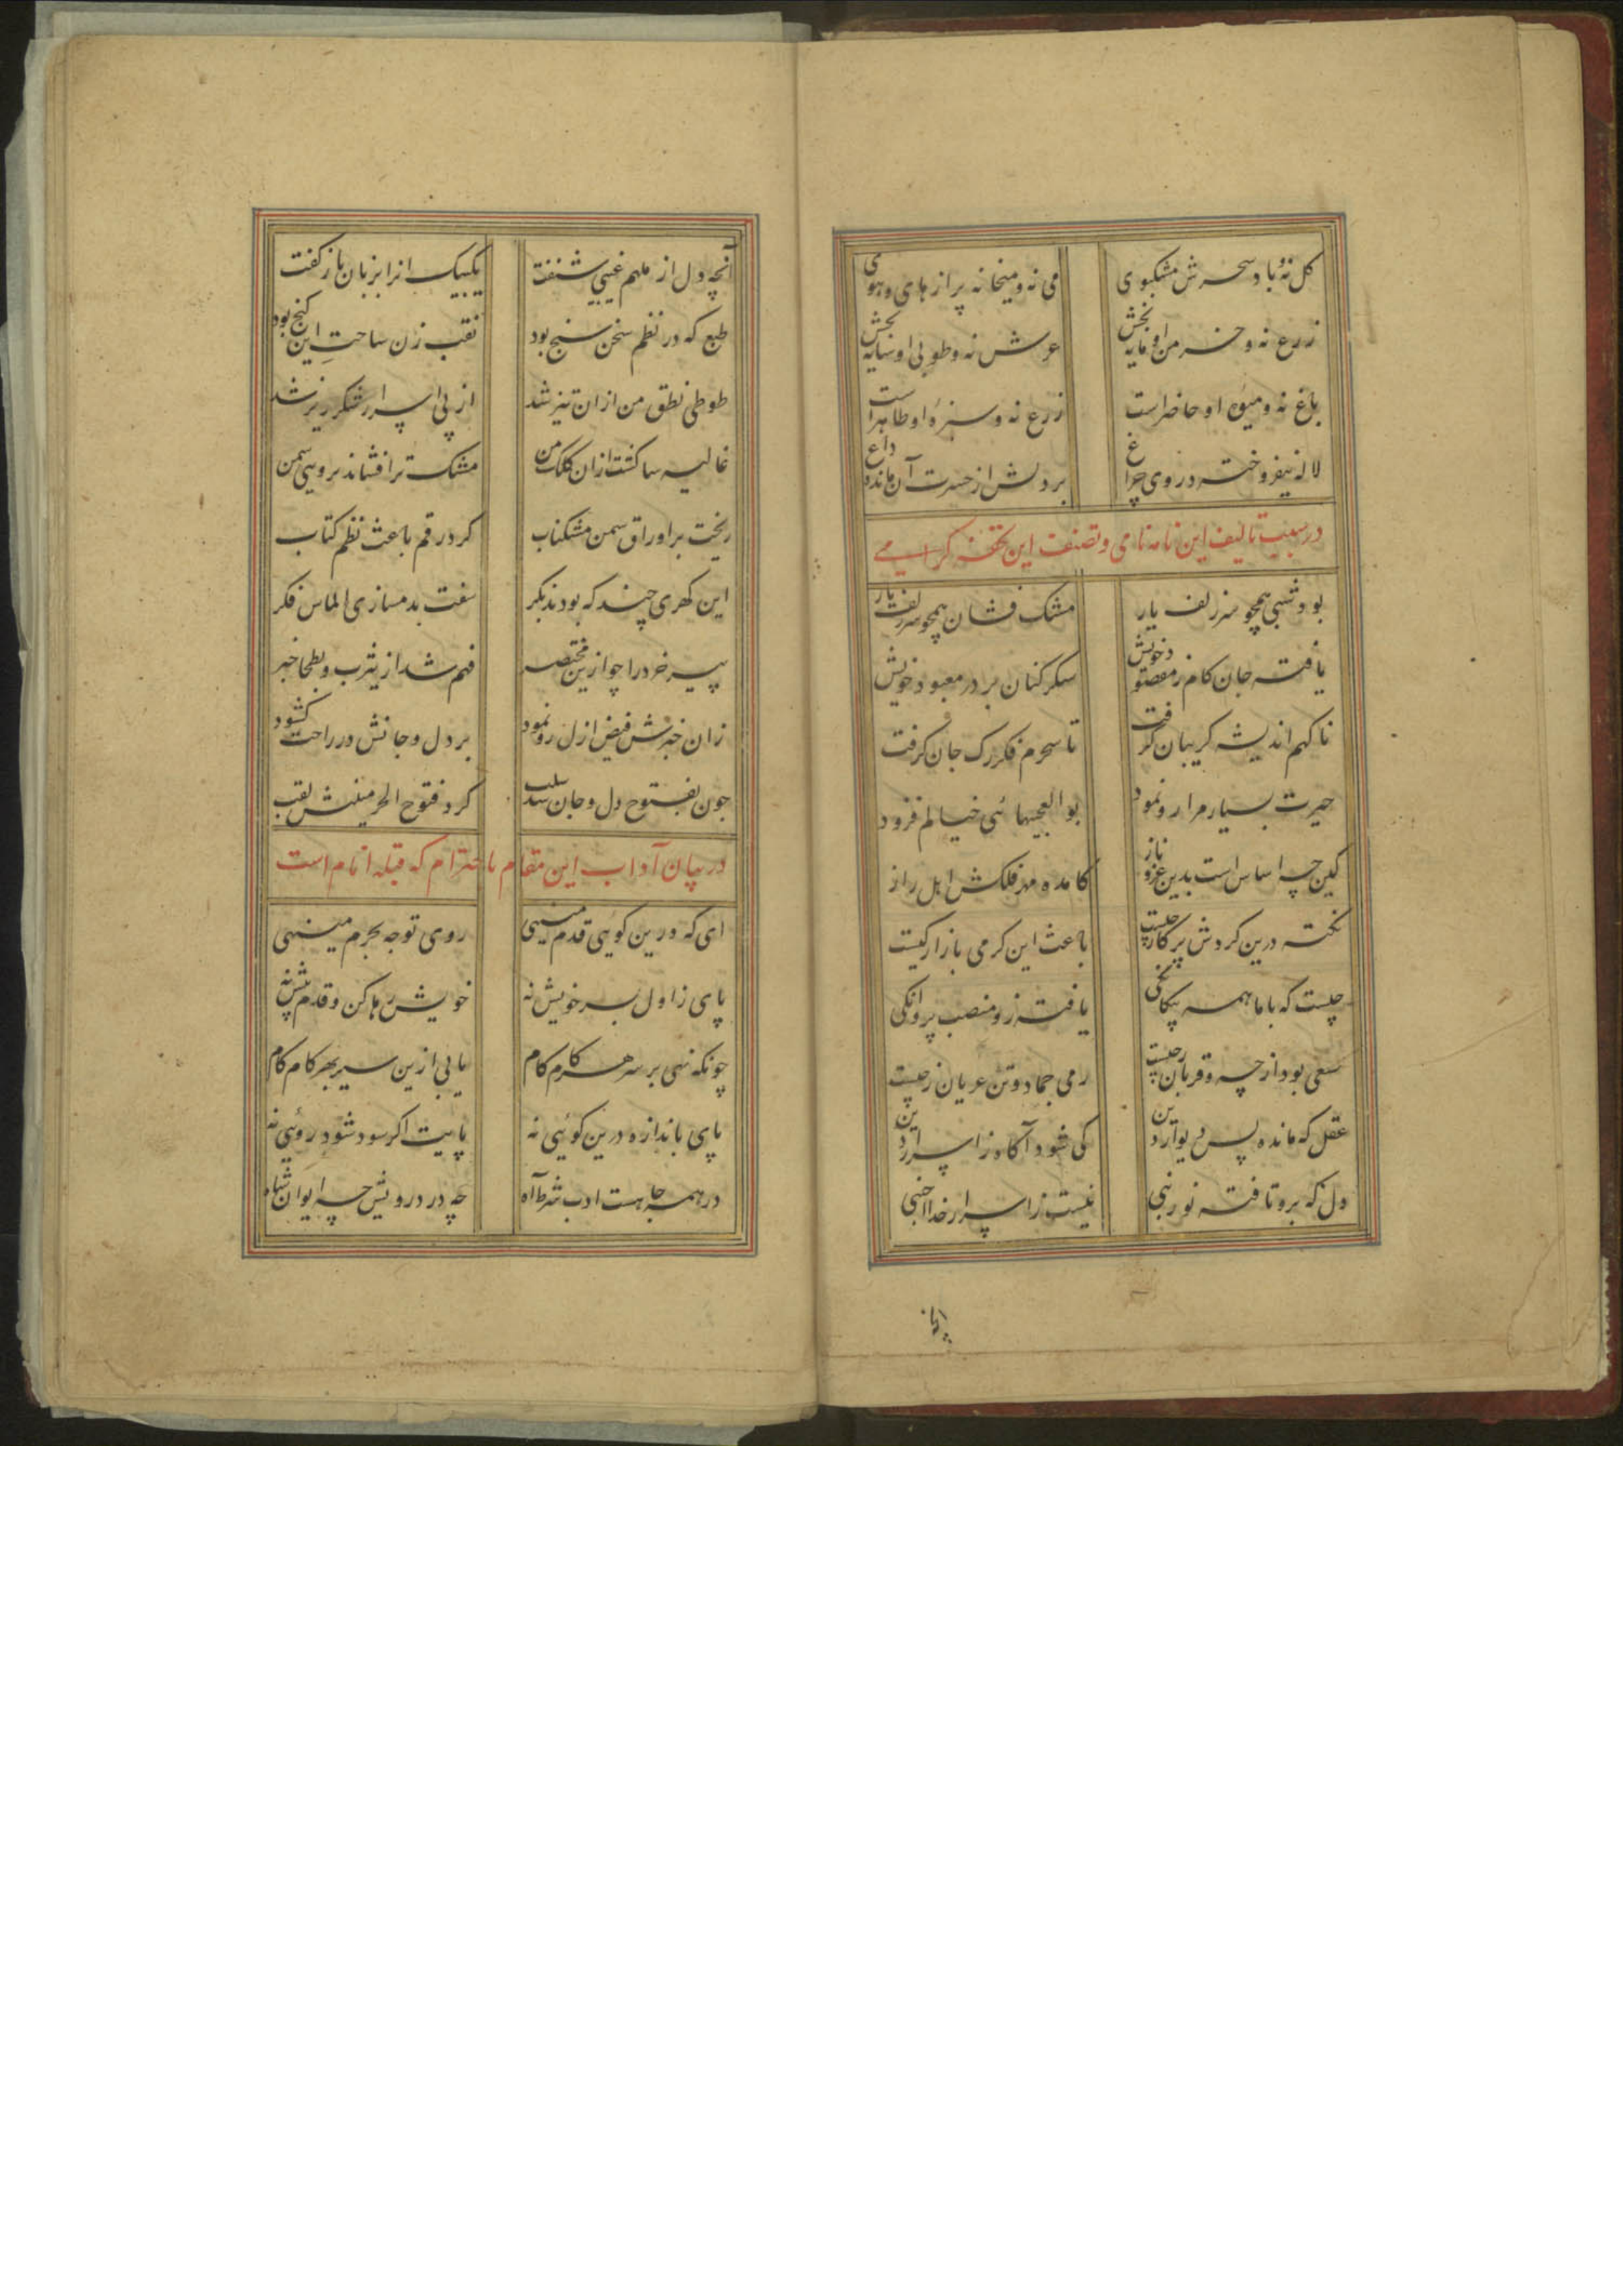 گل نه و باد سحرش مشکبوی
می نه و میخانه پر از های و هوی
زرع نه و خرمن او مایه بخش
عرش نه و طوبی او سایه بخش
باغ نه و میوه او حاضر است
زرع نه و سبزه او ظاهر است
لاله نیفروخته در وی چراغ
بر دلش از حسرت آن مانده داغ
در سبب تالیف این نامه نامی و تصنیف این تحفه کرامی
بود شبی همچو سر زلف یار
مشک فشان همچو سر زلف یار
یافته جان کام ز مقصود خویش
شکر کنان بر در معبود خویش
ناکهم اندیشه کریبان کرفت
تا سحرم فکر رک جان کرفت
حیرت بسیار مرا رو نمود
بوالعجبیهائی خیالم فزود
کین چه اساس است بدین عز و ناز
کامده مهر فلکش اهل راز
نکته درین کردش پرکار چیست
باعث این کرمی بازار کیست
چیست که با ما همه بیکانکی
یافته زو منصب پروانکی
سعی بود از چه و قربان ز چیست
رمی جماد و تن عریان ز چیست
عقل که مانده پس دیوار دین
کی شود آکاه ز اسرار این
دل که برو تافته نور نبی
نیست ز اسرار خدا اجنبی
آنچه دل از ملهم غیبی شنفت
یکبیک انرا بزبان باز کفت
طبع که در نظم سخن سنج بود
نقب زن ساحت این کنج بود
طوطی نطق من ازان تیز شد
از پی اسرار شکرریز شد
غالیه سا کشت ازان کلک من
مشک تر افشاند بروی سمن
ریخت بر اوراق سمن مشکناب
کرد رقم باعث نظم کتاب
این کهری چند که بودند بکر
سفت بدمسازی الماس فکر
پیر خرد را چو ازین مختصر
فهم شد از یثرب و بطحا خبر
زان خبرش فیض ازل رو نمود
بر دل و جانش در راحت کشود
چون بفتوح دل و جان شد سبب
کرد فتوح الحرمینش لقب
در بیان آداب این مقام با احترام که قبله انام است
ای که درین کوی قدم مینهی
روی توجه بحرم مینهی
پای ز اول بسر خویش نه
خویش رها کن و قدم پیش نه
چونکه نهی بر سر هر کام کام
یابی ازین سیر بهر کام کام
پای باندازه درین کوئی نه
پایت اکر سود شود روئی نه
در همه جا هست ادب شرط راه
چه در درویش چه ایوان شاه